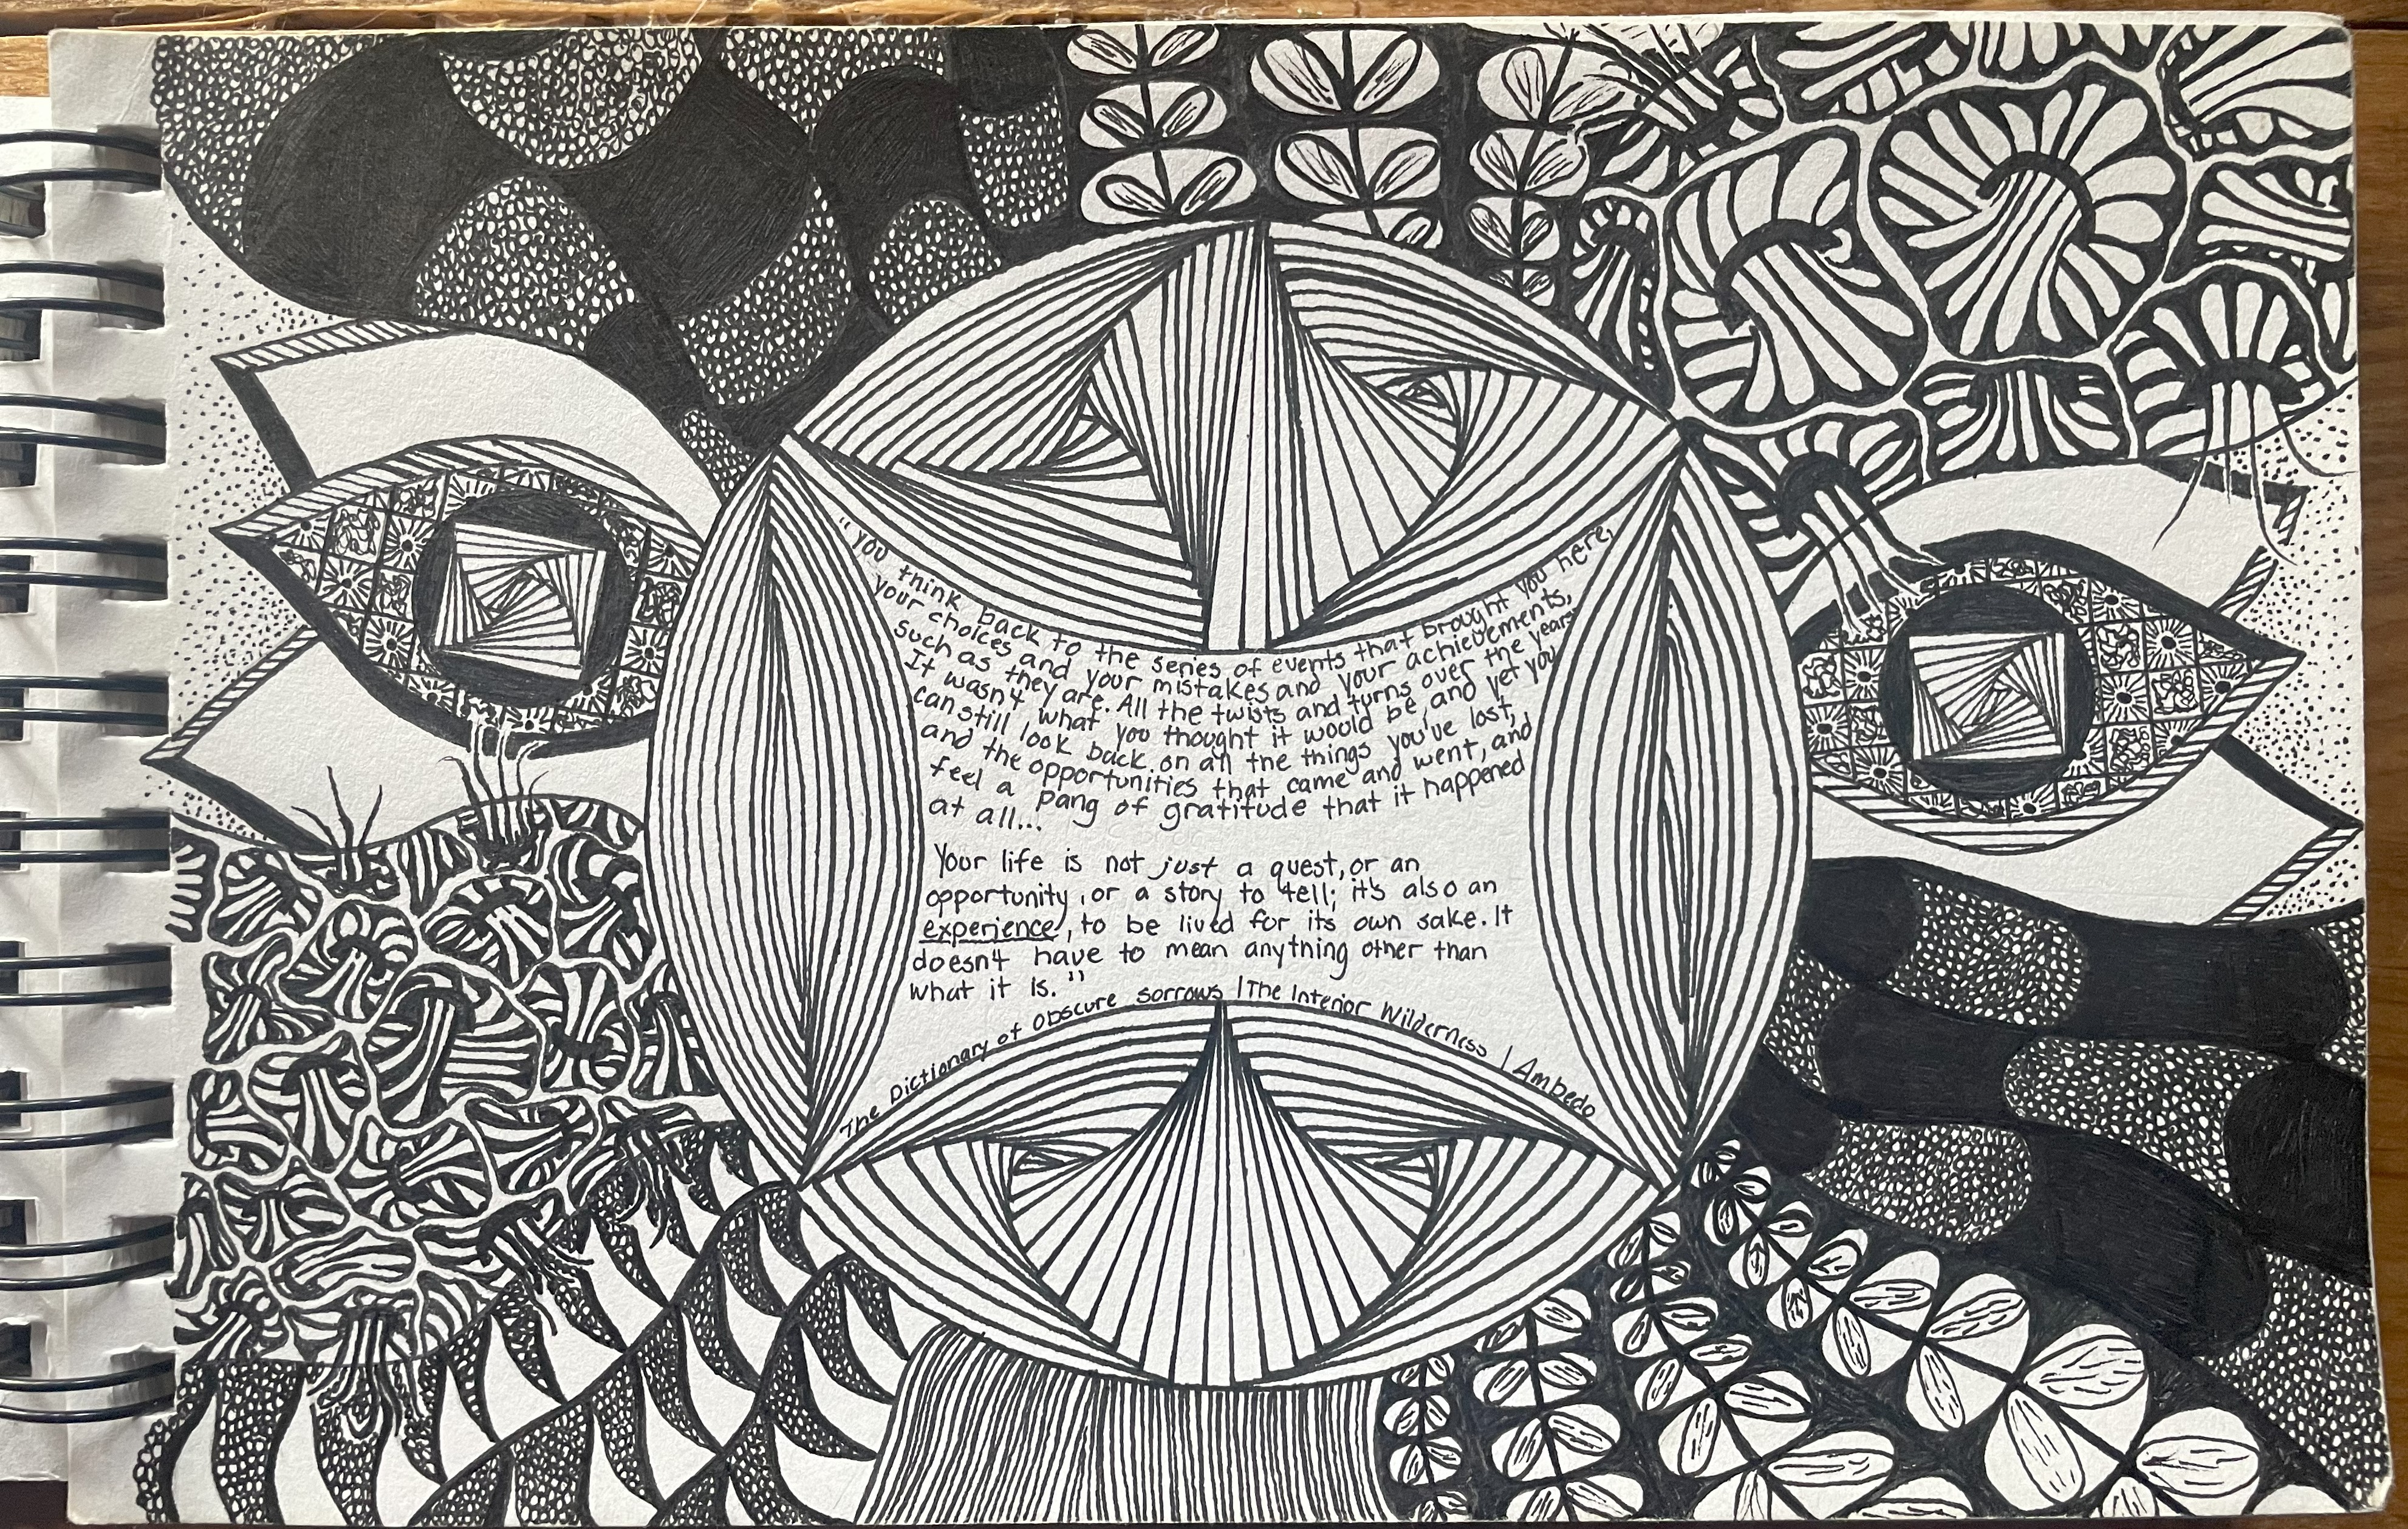 "you think back to the series of events that brought you here,
your choices and your mistakes and your achievements,
such as they are. All the twists and turns over the years.
It wasn't what you thought it would be, and yet you
can still look back on all the things you've lost,
and the opportunities that came and went, and
feel a pang of gratitude that it happened
at all...
Your life is not just a quest, or an
opportunity, or a story to tell; it's also an
experience, to be lived for its own sake. It
doesn't have to mean anything other than
what it is."
The Dictionary of Obscure Sorrows | The Interior Wilderness | Ambedo